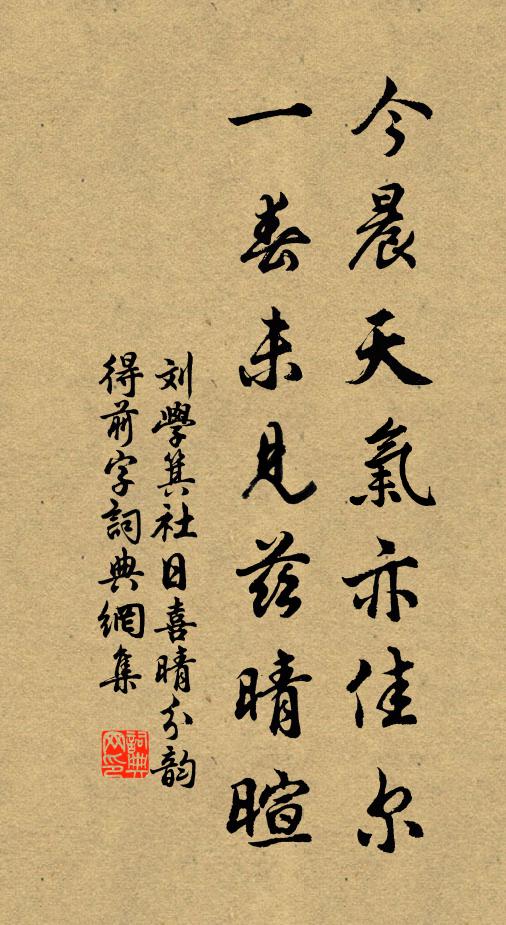 今晨天氣亦佳尔
一春未見茲晴暄
刘學箕社日喜晴分韵
得前字詞典網集
詞典網印